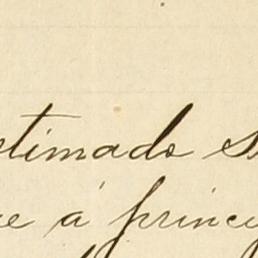 estimado S
e á princi